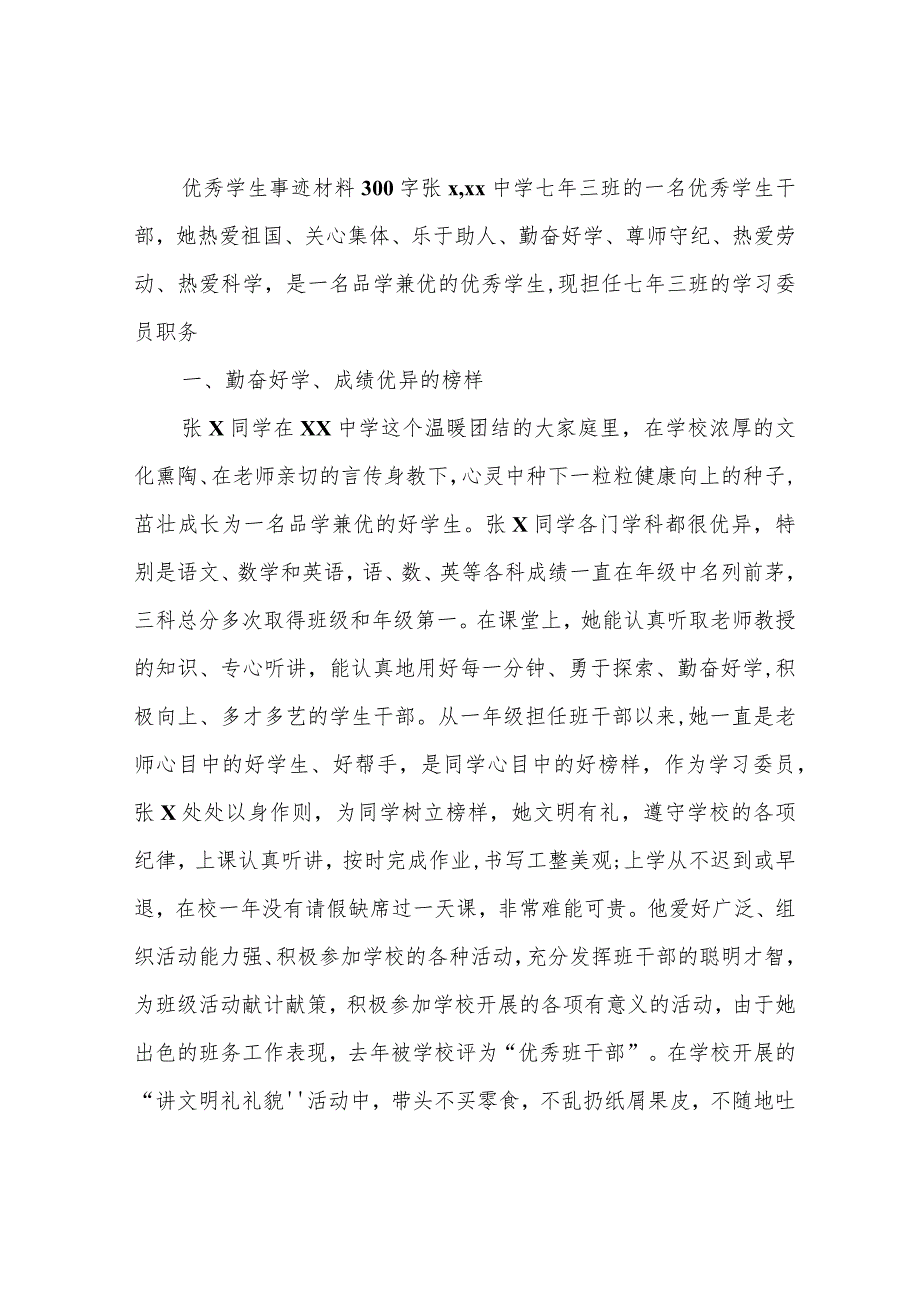 优秀学生事迹材料300字张x,xx中学七年三班的一名优秀学生干
部，她热爱祖国、关心集体、乐于助人、勤奋好学、尊师守纪、热爱劳
动、热爱科学，是一名品学兼优的优秀学生,现担任七年三班的学习委
员职务
一、勤奋好学、成绩优异的榜样
张X同学在XX中学这个温暖团结的大家庭里，在学校浓厚的文
化熏陶、在老师亲切的言传身教下，心灵中种下一粒粒健康向上的种子,
茁壮成长为一名品学兼优的好学生。张X同学各门学科都很优异，特
别是语文、数学和英语，语、数、英等各科成绩一直在年级中名列前茅，
三科总分多次取得班级和年级第一。在课堂上，她能认真听取老师教授
的知识、专心听讲，能认真地用好每一分钟、勇于探索、勤奋好学,积
极向上、多才多艺的学生干部。从一年级担任班干部以来,她一直是老
师心目中的好学生、好帮手，是同学心目中的好榜样，作为学习委员，
张X处处以身作则，为同学树立榜样，她文明有礼，遵守学校的各项
纪律，上课认真听讲，按时完成作业,书写工整美观;上学从不迟到或早
退，在校一年没有请假缺席过一天课，非常难能可贵。他爱好广泛、组
织活动能力强、积极参加学校的各种活动，充分发挥班干部的聪明才智，
为班级活动献计献策，积极参加学校开展的各项有意义的活动，由于她
出色的班务工作表现，去年被学校评为“优秀班干部”。在学校开展的
“讲文明礼礼貌''活动中，带头不买零食，不乱扔纸屑果皮，不随地吐